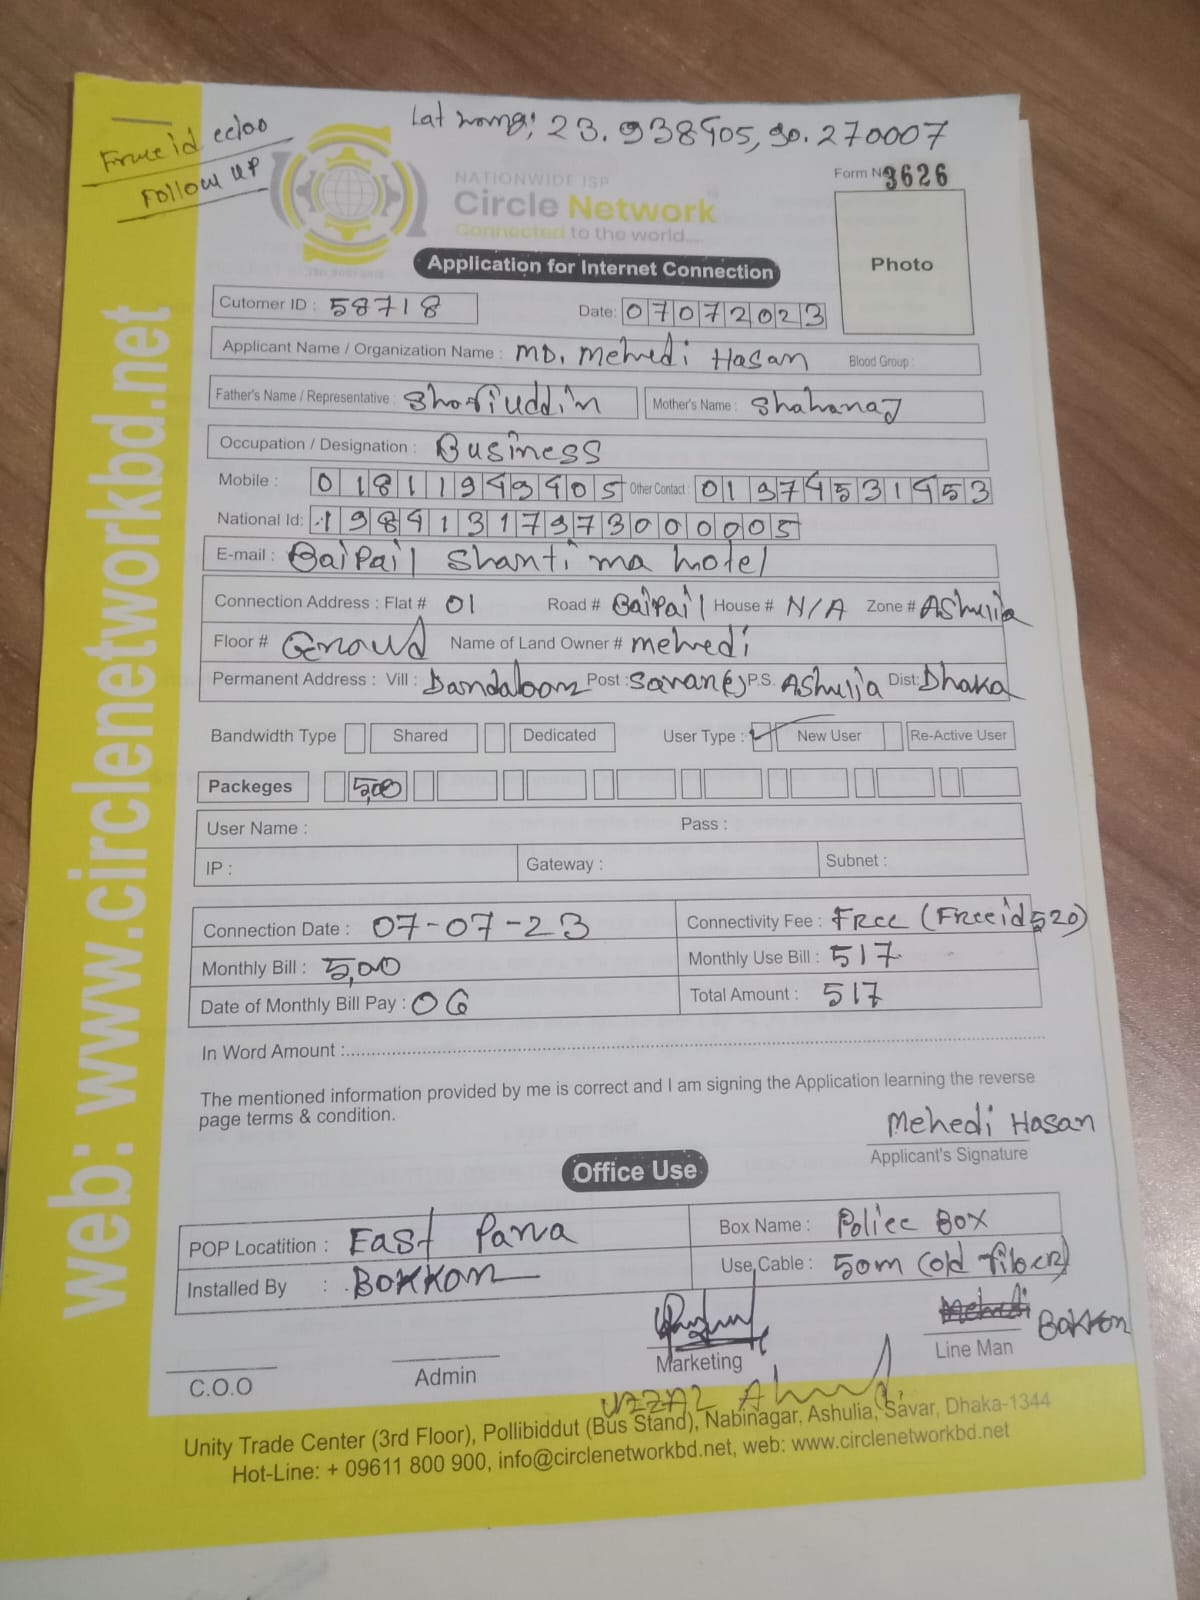 Lat Long; 23.938905, 90.270007
Free id ccloo
Follow UP
NATIONWIDE ISP
Circle Network
Connected to the world....
Form No 3626
Photo
Application for Internet Connection
Cutomer ID : 58718 Date: 07072023
Applicant Name / Organization Name : MD. Mehedi Hasan Blood Group :
Father's Name / Representative : Shofiuddin Mother's Name : Shahanaj
Occupation / Designation : Business
Mobile : 01811949905 Other Contact : 01974531953
National Id: 19891317973000005
E-mail : BaiPail Shanti ma hotel
Connection Address : Flat # 01 Road # BaiPail House # N/A Zone # Ashulia
Floor # Ground Name of Land Owner # mehedi
Permanent Address : Vill : Post : Savar P.S. Ashulia Dist: Dhaka
Bandwidth Type Shared Dedicated User Type : New User Re-Active User
Packeges 500
User Name : Pass :
IP : Gateway : Subnet :
Connection Date : 07-07-23 Connectivity Fee : FREE (Free id 520)
Monthly Bill : 500 Monthly Use Bill : 517
Date of Monthly Bill Pay : 06 Total Amount : 517
In Word Amount :
The mentioned information provided by me is correct and I am signing the Application learning the reverse
page terms & condition.
Mehedi Hasan
Applicant's Signature
Office Use
POP Locatition : East Para Box Name : Police Box
Installed By : BOKKOR Use Cable : 50m (old fiber)
Bokkor
C.O.O Admin Marketing Line Man
UZZAL Ahmed
Unity Trade Center (3rd Floor), Pollibiddut (Bus Stand), Nabinagar, Ashulia, Savar, Dhaka-1344
Hot-Line: + 09611 800 900, info@circlenetworkbd.net, web: www.circlenetworkbd.net
web: www.circlenetworkbd.net